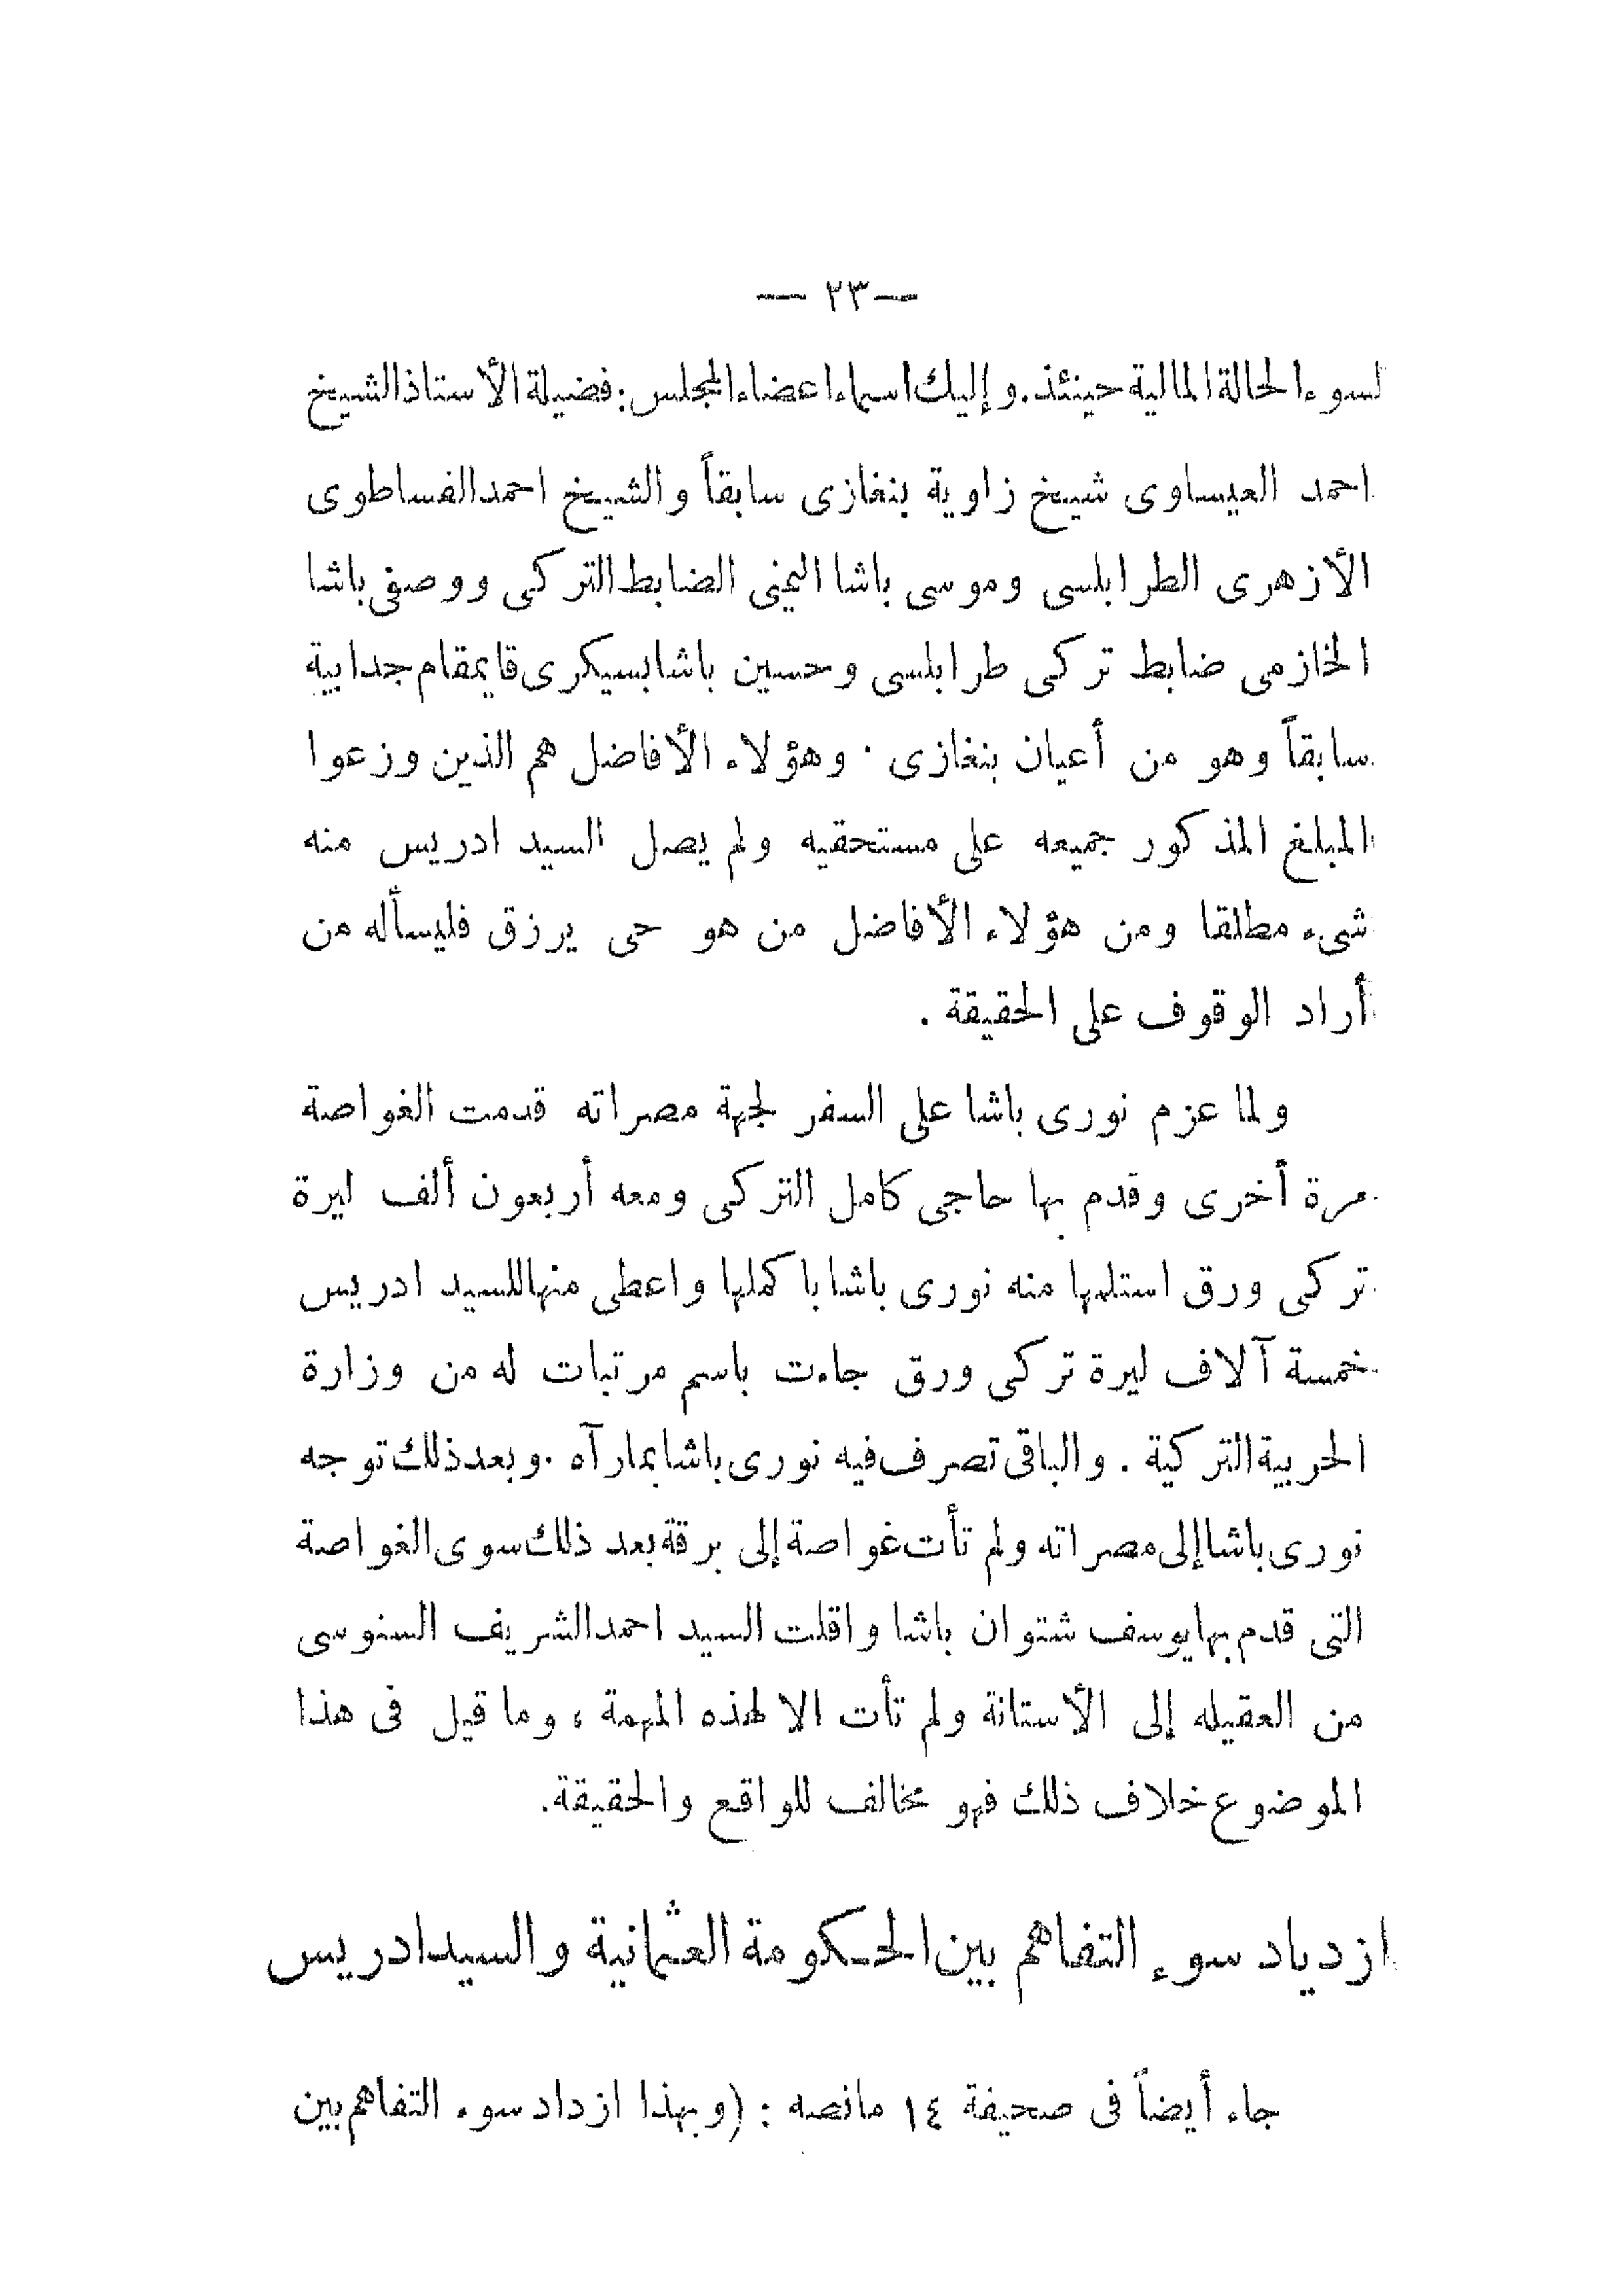 — ٢٣ —
لسوء الحالة المالية حينئذ. وإليك اسماء اعضاء المجلس: فضيلة الأستاذ الشيخ
احمد العيساوى شيخ زاوية بنغازى سابقاً والشيخ احمد الفساطوى
الأزهرى الطرابلسى وموسى باشا اليمنى الضابط التركى ووصفى باشا
الخازمى ضابط تركى طرابلسى وحسين باشا بسيكرى قايمقام جدابية
سابقاً وهو من أعيان بنغازى . وهؤلاء الأفاضل هم الذين وزعوا
المبلغ المذكور جميعه على مستحقيه ولم يصل السيد ادريس منه
شىء مطلقا ومن هؤلاء الأفاضل من هو حى يرزق فليسأله من
أراد الوقوف على الحقيقة .
ولما عزم نورى باشا على السفر لجهة مصراته قدمت الغواصة
مرة أخرى وقدم بها حاجى كامل التركى ومعه أربعون ألف ليرة
تركى ورق استلمها منه نورى باشا باكملها واعطى منها للسيد ادريس
خمسة آلاف ليرة تركى ورق جاءت باسم مرتبات له من وزارة
الحربية التركية . والباقى تصرف فيه نورى باشا بمارآه . وبعد ذلك توجه
نورى باشا إلى مصراته ولم تأت غواصة إلى برقة بعد ذلك سوى الغواصة
التى قدم بها يوسف شتوان باشا واقلت السيد احمد الشريف السنوسى
من العقيله إلى الأستانة ولم تأت الا لهذه المهمة ، وما قيل فى هذا
الموضوع خلاف ذلك فهو مخالف للواقع والحقيقة.
ازدياد سوء التفاهم بين الحكومة العثمانية والسيد ادريس
جاء أيضاً فى صحيفة ١٤ مانصه : (وبهذا ازداد سوء التفاهم بين